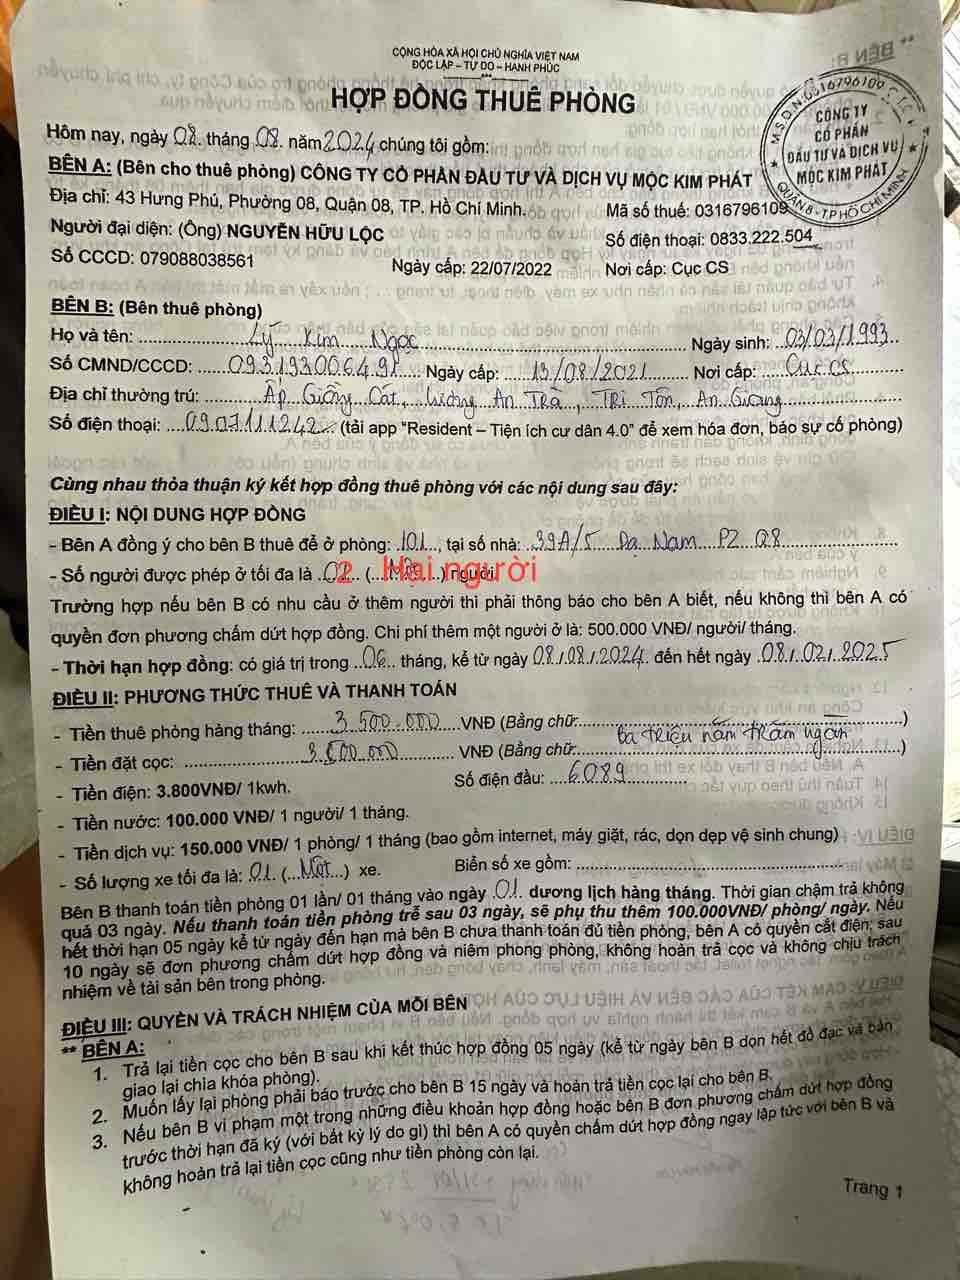 CỘNG HÒA XÃ HỘI CHỦ NGHĨA VIỆT NAM
ĐỘC LẬP – TỰ DO – HẠNH PHÚC
HỢP ĐỒNG THUÊ PHÒNG
M.S.D.N:0316796109
CÔNG TY
CỔ PHẦN
ĐẦU TƯ VÀ DỊCH VỤ
MỘC KIM PHÁT
QUẬN 8 - TP HỒ CHÍ MINH
Hôm nay, ngày 08. tháng 08. năm 2024 chúng tôi gồm:
BÊN A: (Bên cho thuê phòng) CÔNG TY CỔ PHẦN ĐẦU TƯ VÀ DỊCH VỤ MỘC KIM PHÁT
Địa chỉ: 43 Hưng Phú, Phường 08, Quận 08, TP. Hồ Chí Minh. Mã số thuế: 0316796109
Người đại diện: (Ông) NGUYỄN HỮU LỘC Số điện thoại: 0833.222.504
Số CCCD: 079088038561 Ngày cấp: 22/07/2022 Nơi cấp: Cục CS
BÊN B: (Bên thuê phòng)
Họ và tên: Lý Kim Ngọc Ngày sinh: 03/03/1993
Số CMND/CCCD: Ngày cấp: 13/08/2021 Nơi cấp: Cục CS
Địa chỉ thường trú: Ấp Giồng Cát, Lương An Trà, Tri Tôn, An Giang
Số điện thoại: 0907111242 (tải app “Resident – Tiện ích cư dân 4.0” để xem hóa đơn, báo sự cố phòng)
Cùng nhau thỏa thuận ký kết hợp đồng thuê phòng với các nội dung sau đây:
ĐIỀU I: NỘI DUNG HỢP ĐỒNG
- Bên A đồng ý cho bên B thuê để ở phòng: 101, tại số nhà: 39A/5 Dạ Nam P2 Q8
- Số người được phép ở tối đa là 2 Hai người
Trường hợp nếu bên B có nhu cầu ở thêm người thì phải thông báo cho bên A biết, nếu không thì bên A có
quyền đơn phương chấm dứt hợp đồng. Chi phí thêm một người ở là: 500.000 VNĐ/ người/ tháng.
- Thời hạn hợp đồng: có giá trị trong 06 tháng, kể từ ngày 08/08/2024 đến hết ngày 08/02/2025
ĐIỀU II: PHƯƠNG THỨC THUÊ VÀ THANH TOÁN
- Tiền thuê phòng hàng tháng: 3.500.000 VNĐ (Bằng chữ: )
- Tiền đặt cọc: VNĐ (Bằng chữ: Ba triệu năm trăm ngàn )
- Tiền điện: 3.800VNĐ/ 1kwh. Số điện đầu: 6089
- Tiền nước: 100.000 VNĐ/ 1 người/ 1 tháng.
- Tiền dịch vụ: 150.000 VNĐ/ 1 phòng/ 1 tháng (bao gồm internet, máy giặt, rác, dọn dẹp vệ sinh chung)
- Số lượng xe tối đa là: 01 (Một) xe. Biển số xe gồm:
Bên B thanh toán tiền phòng 01 lần/ 01 tháng vào ngày 01. dương lịch hàng tháng. Thời gian chậm trả không
quá 03 ngày. Nếu thanh toán tiền phòng trễ sau 03 ngày, sẽ phụ thu thêm 100.000VNĐ/ phòng/ ngày. Nếu
hết thời hạn 05 ngày kể từ ngày đến hạn mà bên B chưa thanh toán đủ tiền phòng, bên A có quyền cắt điện; sau
10 ngày sẽ đơn phương chấm dứt hợp đồng và niêm phong phòng, không hoàn trả cọc và không chịu trách
nhiệm về tài sản bên trong phòng.
ĐIỀU III: QUYỀN VÀ TRÁCH NHIỆM CỦA MỖI BÊN
** BÊN A:
1. Trả lại tiền cọc cho bên B sau khi kết thúc hợp đồng 05 ngày (kể từ ngày bên B dọn hết đồ đạc và bàn
giao lại chìa khóa phòng).
2. Muốn lấy lại phòng phải báo trước cho bên B 15 ngày và hoàn trả tiền cọc lại cho bên B.
3. Nếu bên B vi phạm một trong những điều khoản hợp đồng hoặc bên B đơn phương chấm dứt hợp đồng
trước thời hạn đã ký (với bất kỳ lý do gì) thì bên A có quyền chấm dứt hợp đồng ngay lập tức với bên B và
không hoàn trả lại tiền cọc cũng như tiền phòng còn lại.
Trang 1